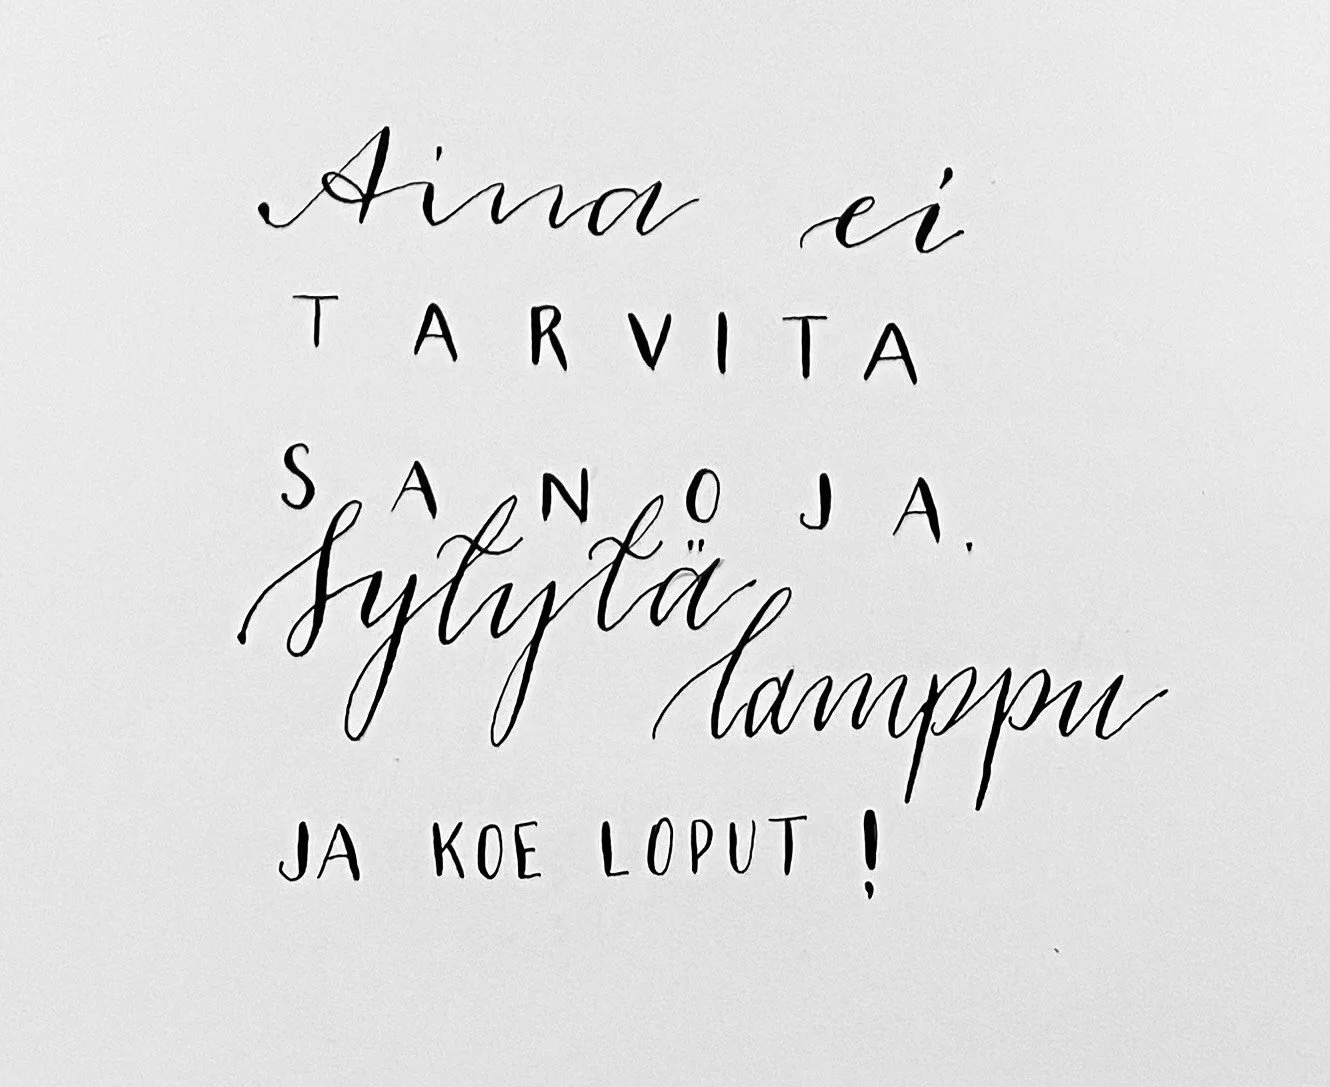 Aina ei
TARVITA
SANOJA.
Sytytä
lamppu
JA KOE LOPUT!